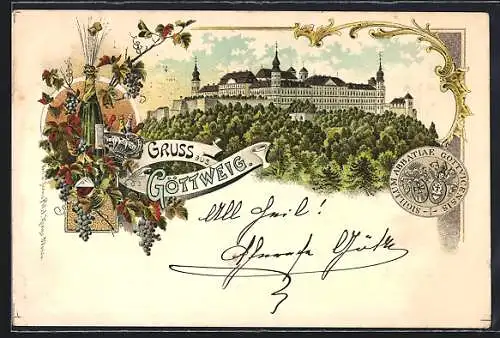 GRUSS aus
GÖTTWEIG.
SIGILLUM ABBATIAE GOTTWICENSIS
All Heil!
Götz